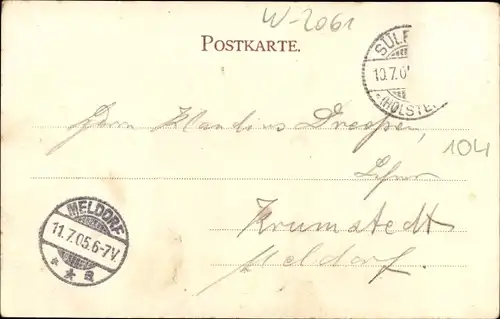 W-2061
POSTKARTE.
SÜL
10.7.0
(HOLSTE
Herrn Klaudius Dresser,
104
Lehrer
Krumstedt
Meldorf.
MELDORF
11.7.05.6-7V.
* * a